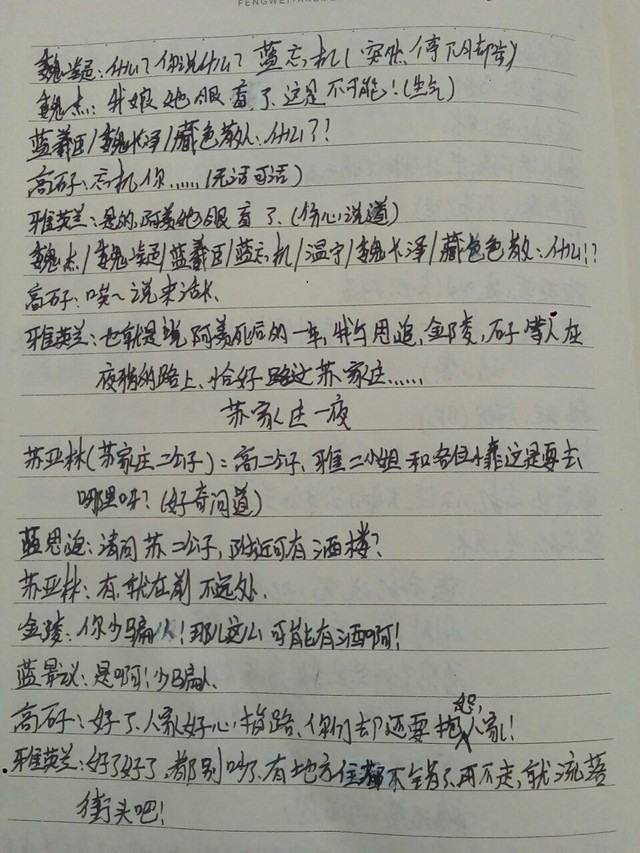 FENGWEI
魏婴:什么?你说什么?蓝忘机(突然停下脚步)
魏杰:我娘她眼盲了这是不可能!(生气)
蓝羲臣/魏长泽/藏色散人:什么?!
高矸子:忘机你......(无话可话)
雅英兰:是的,阿羡她眼盲了.(伤心说道)
魏杰/魏婴/蓝羲臣/蓝忘机/温宁/魏长泽/藏色色散:什么!?
高矸子:唉~说来话长.
雅英兰:也就是说阿羡死后的一年,我与思追,金陵,矸子等人在
夜猎的路上、恰好路过苏家庄......
苏家庄一夜
苏亚林(苏家庄二公子):高二公子,雅二小姐和各位小辈这是要去
哪里呀?(好奇问道)
蓝思追:请问苏二公子,附近可有酒楼?
苏亚林:有,就在前不远处.
金陵:你少骗人!那儿这么可能有酒啊!
蓝景议:是啊!少骗人.
高矸子:好了.人家好心指路、你们却还要抱怨人家!
雅英兰:好了好了,都别吵了.有地方住都不错了.再不走,就流落
街头吧!